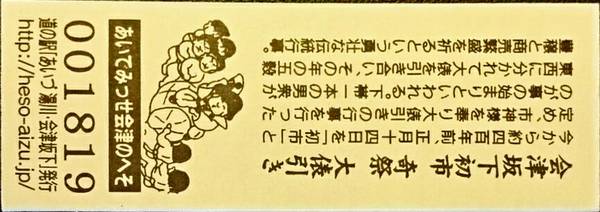 会津坂下初市 奇祭 大俵引き
今から約四百年前 正月十四日を「初市」と
定め、市神様を奉り大俵引きの行事を行った
のが事の始まりといわれる。下帯一本の男衆が
東西に分かれて大俵を引き合い、その年の五穀
豊穣と商売繁盛を祈るという勇壮な伝統行事。
あいてみっせ会津のへそ
001819
道の駅「あいづ 湯川・会津坂下」発行
http://heso-aizu.jp/